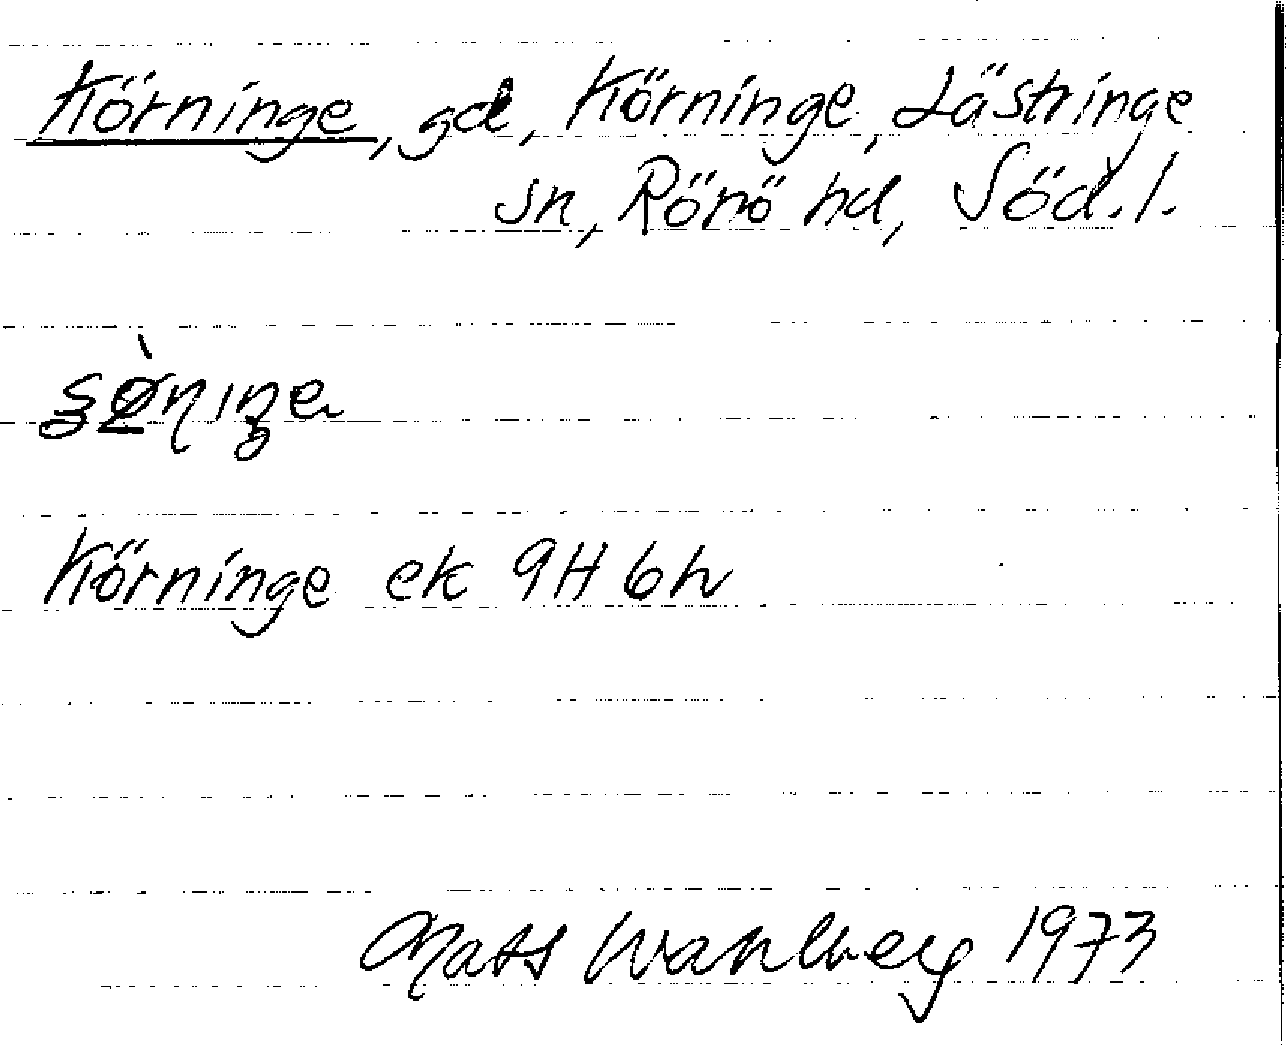 Körninge, gd, Körninge, Lästringe
sn, Rönö hd, Söd. l.
Körninge ek 9H 6h
Mats Wahlberg 1973